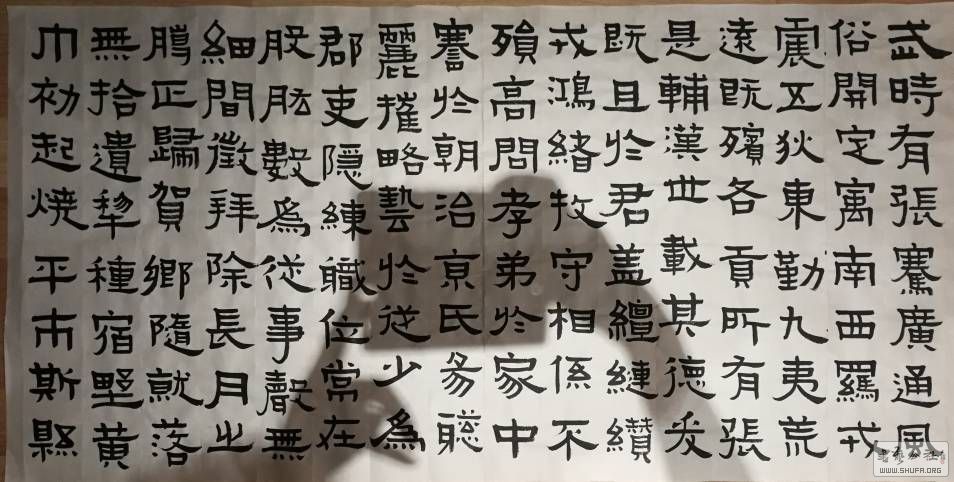 武時有張騫廣通風
俗開定寓南西羅戎
震五狄東勤九夷荒
遠既殯各貢所有張
是輔漢世載其德爰
既且於君盖纏縺纘
戎鴻緒牧守相係不
殞高問孝弟於家中
謇於朝治京氏易聰
麗略藝於從少為
郡吏隱練職位常在
股肱數為從事聲無
細間徵拜除長月之
騰正歸賀鄉隨就落
無拾遺犁種宿野黃
巾初起燒平市斯縣
WWW.SHUFA.ORG